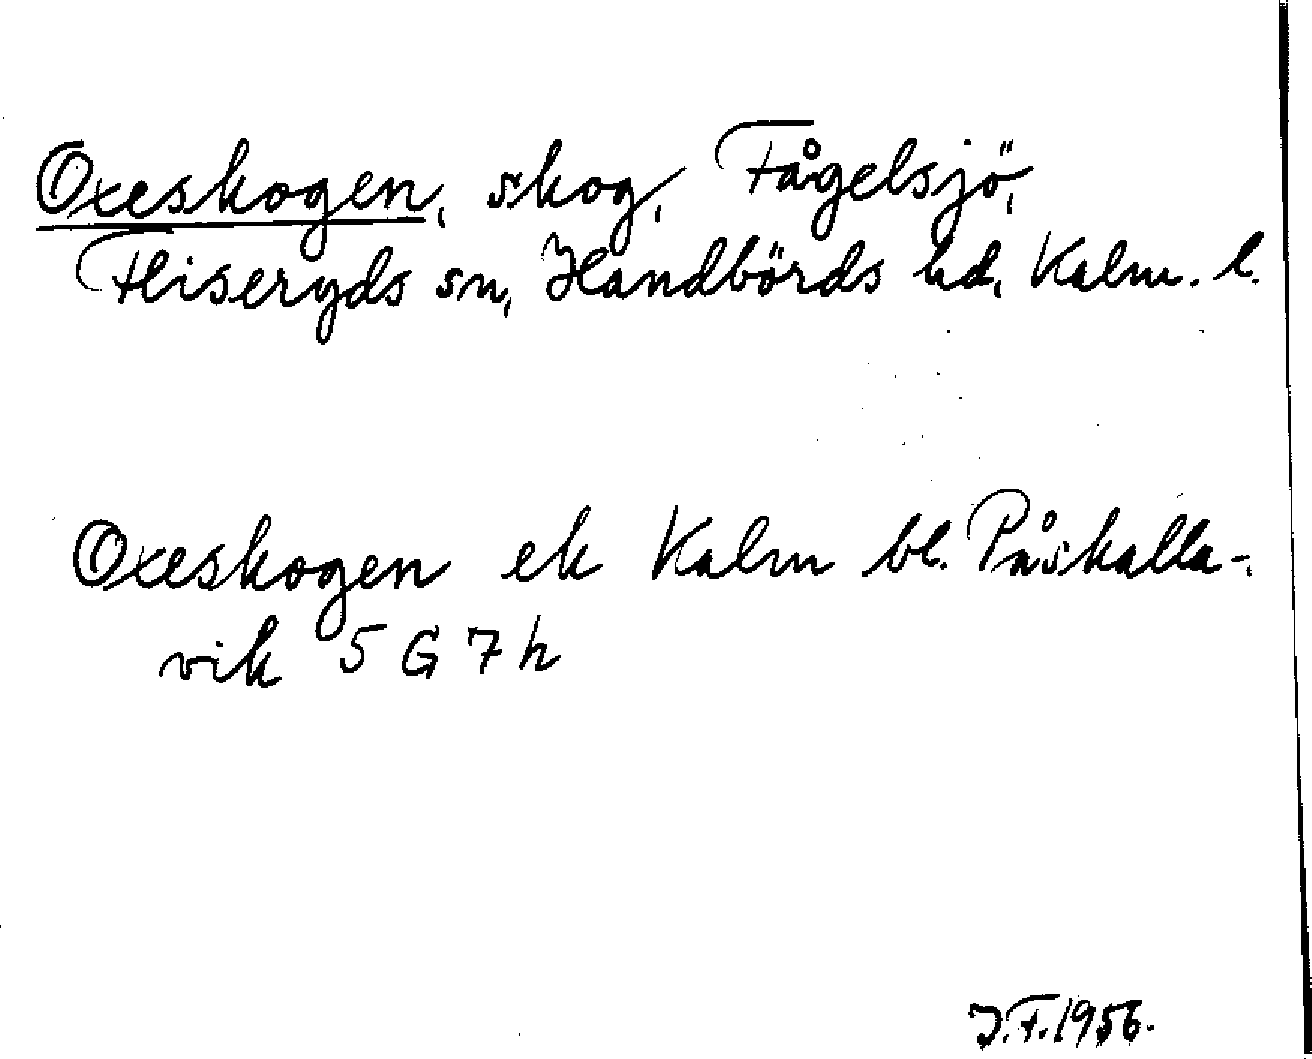 Oxeskogen, skog, Fågelsjö,
Fliseryds sn, Handbörds hd, Kalm. l.
Oxeskogen ek Kalm bl. Påskalla-
vik 5 G 7 h
J.F. 1956.